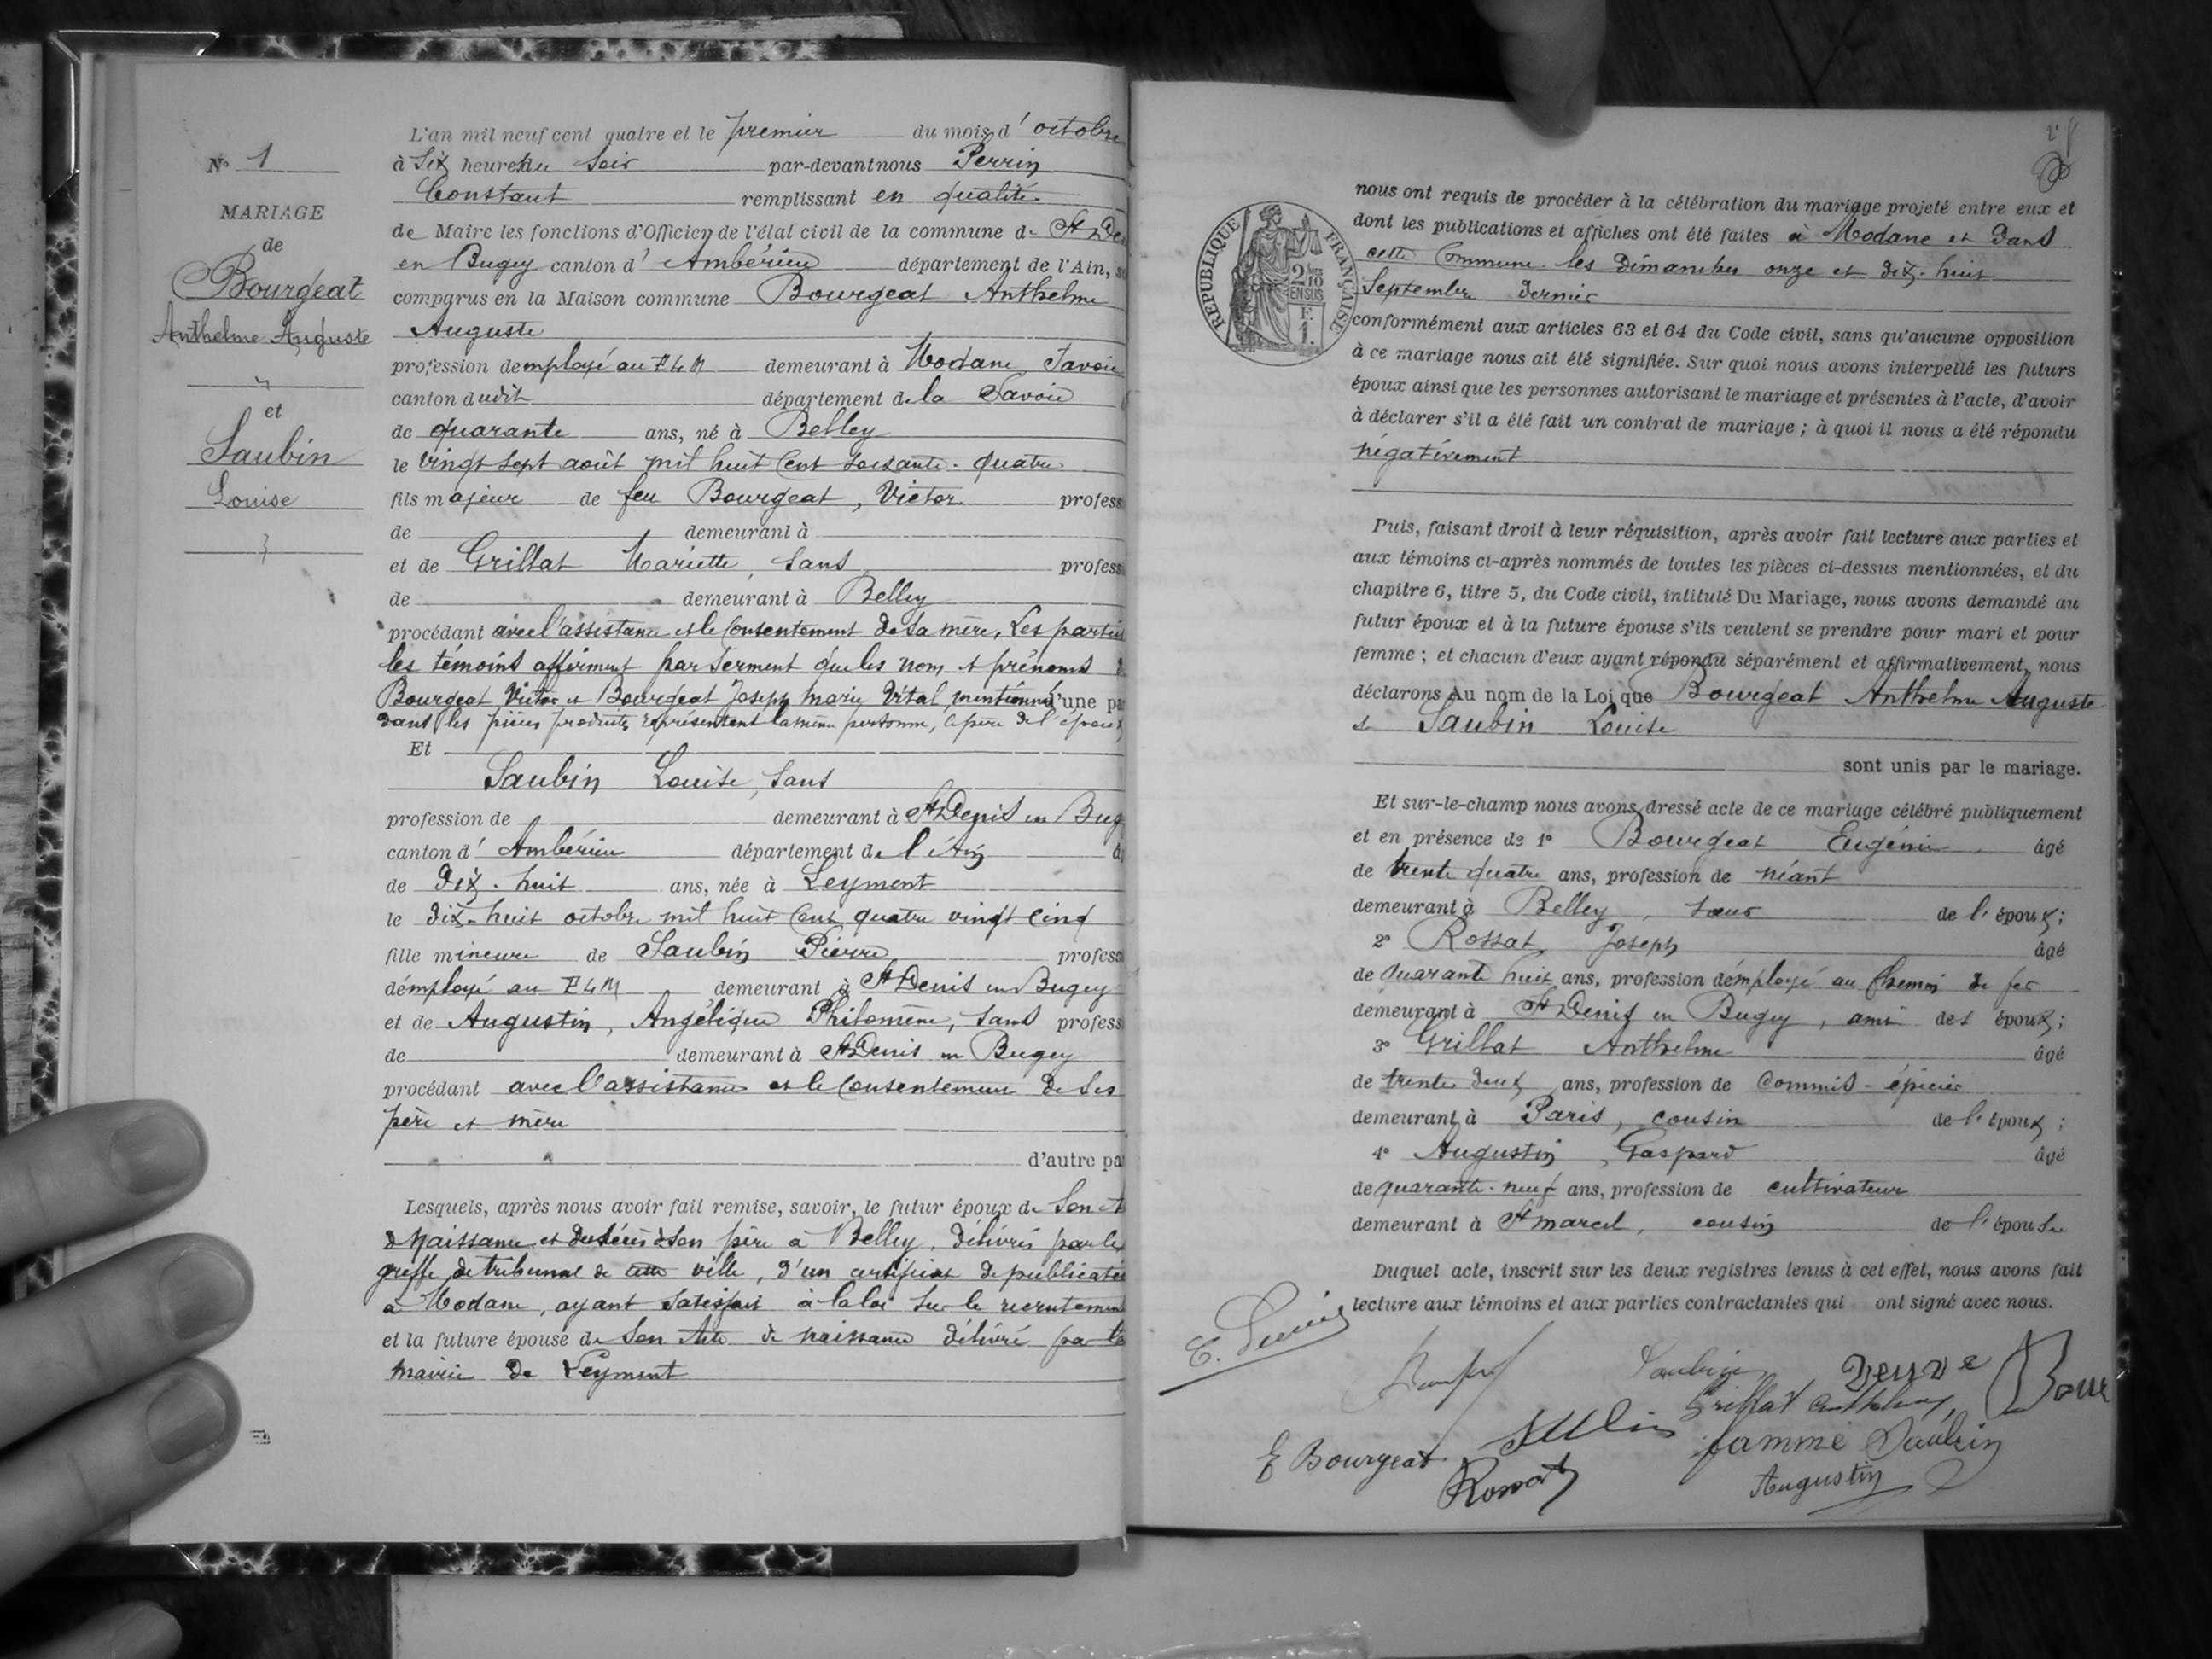 N° 1
MARIAGE
de
Bourgeat
Anthelme Auguste
et
Saubin
Louise
L'an mil neuf cent quatre et le premier du mois d'octobre
à six heures du soir par-devant nous Perrin
Constant remplissant en qualité
de Maire les fonctions d'Officier de l'état civil de la commune de St De
en Bugey canton d'Ambérieu département de l'Ain,
comparus en la Maison commune Bourgeat Anthelme
Auguste
profession d'employé au PLM demeurant à Modane Savoie
canton dudit département de la Savoie
de quarante ans, né à Belley
le vingt sept août mil huit cent soixante-quatre
fils majeur de feu Bourgeat, Victor profess
de demeurant à
et de Grillat Mariette, sans profess
de demeurant à Belley
procédant avec l'assistance et le consentement de sa mère, Les parties
les témoins affirment par serment que les nom et prénoms
Bourgeat Victor et Bourgeat Joseph Marie Vital, mentionnés d'une pa
dans les pièces produites représentent la même personne, le père de l'époux
Et
Saubin Louise, sans
profession de demeurant à St Denis en Bug
canton d'Ambérieu département de l'Ain
de dix-huit ans, née à Leyment
le dix-huit octobre mil huit cent quatre vingt cinq
fille mineure de Saubin Pierre profess
d'employé au PLM demeurant à St Denis en Bugey
et de Augustin, Angélique Philomène, sans profess
de demeurant à St Denis en Bugey
procédant avec l'assistance et le consentement de ses
père et mère
d'autre pa
Lesquels, après nous avoir fait remise, savoir, le futur époux de son
de naissance et du décès de son père à Belley, délivrés par le
greffe de tribunal de cette ville, d'un certificat de publication
à Modane, ayant satisfait à la loi sur le recrutement
et la future épouse de son acte de naissance délivré par la
mairie de Leyment
nous ont requis de procéder à la célébration du mariage projeté entre eux et
dont les publications et affiches ont été faites à Modane et dans
cette commune les dimanches onze et dix-huit
septembre dernier
RÉPUBLIQUE FRANÇAISE
2/10 EN SUS
1.
conformément aux articles 63 et 64 du Code civil, sans qu'aucune opposition
à ce mariage nous ait été signifiée. Sur quoi nous avons interpellé les futurs
époux ainsi que les personnes autorisant le mariage et présentes à l'acte, d'avoir
à déclarer s'il a été fait un contrat de mariage ; à quoi il nous a été répondu
négativement
Puis, faisant droit à leur réquisition, après avoir fait lecture aux parties et
aux témoins ci-après nommés de toutes les pièces ci-dessus mentionnées, et du
chapitre 6, titre 5, du Code civil, intitulé Du Mariage, nous avons demandé au
futur époux et à la future épouse s'ils veulent se prendre pour mari et pour
femme ; et chacun d'eux ayant répondu séparément et affirmativement, nous
déclarons Au nom de la Loi que Bourgeat Anthelme Auguste
et Saubin Louise
sont unis par le mariage.
Et sur-le-champ nous avons dressé acte de ce mariage célébré publiquement
et en présence de 1° Bourgeat Eugénie âgé
de trente quatre ans, profession de néant
demeurant à Belley, sœur de l'époux ;
2° Rossat Joseph âgé
de quarante huit ans, profession d'employé au chemin de fer
demeurant à St Denis en Bugey, ami des époux ;
3° Grillat Anthelme âgé
de trente deux ans, profession de commis-épicier
demeurant à Paris, cousin de l'époux ;
4° Augustin, Gaspard âgé
de quarante-neuf ans, profession de cultivateur
demeurant à St marcel, cousin de l'épouse
Duquel acte, inscrit sur les deux registres tenus à cet effet, nous avons fait
lecture aux témoins et aux parties contractantes qui ont signé avec nous.
Saubin veuve Bour
Grillat Anthelme
E Bourgeat famme Saubin
Rossat Augustin